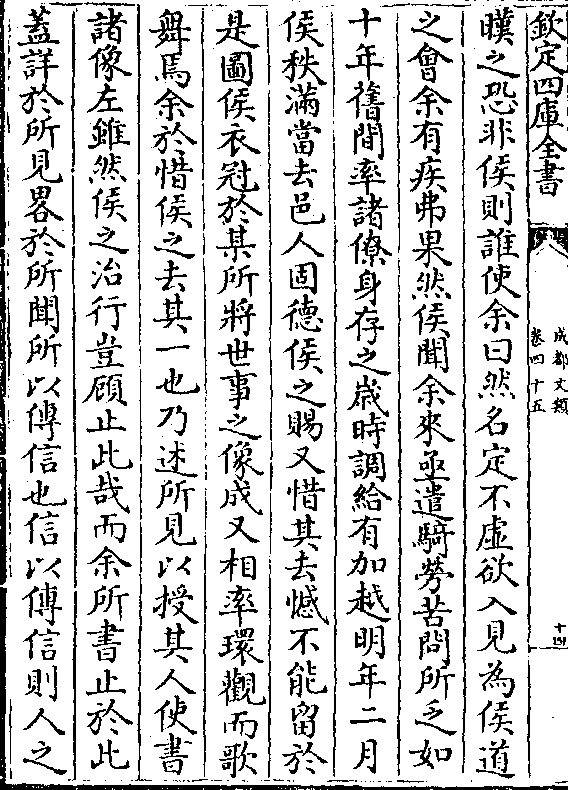 欽定四庫全書
成都文類
卷四十五
十四
暵之恐非侯則誰使余曰然名定不虛欲入見為侯道
之會余有疾弗果然侯聞余來亟遣騎勞苦問所乏如
十年舊間率諸僚身存之嵗時調給有加越明年二月
侯秩滿當去邑人固德侯之賜又惜其去憾不能留於
是圖侯衣冠於某所將世事之像成又相率環觀而歌
舞焉余於惜侯之去其一也乃述所見以授其人使書
諸像左雖然侯之治行豈顧止此哉而余所書止於此
蓋詳於所見畧於所聞所以傳信也信以傳信則人之